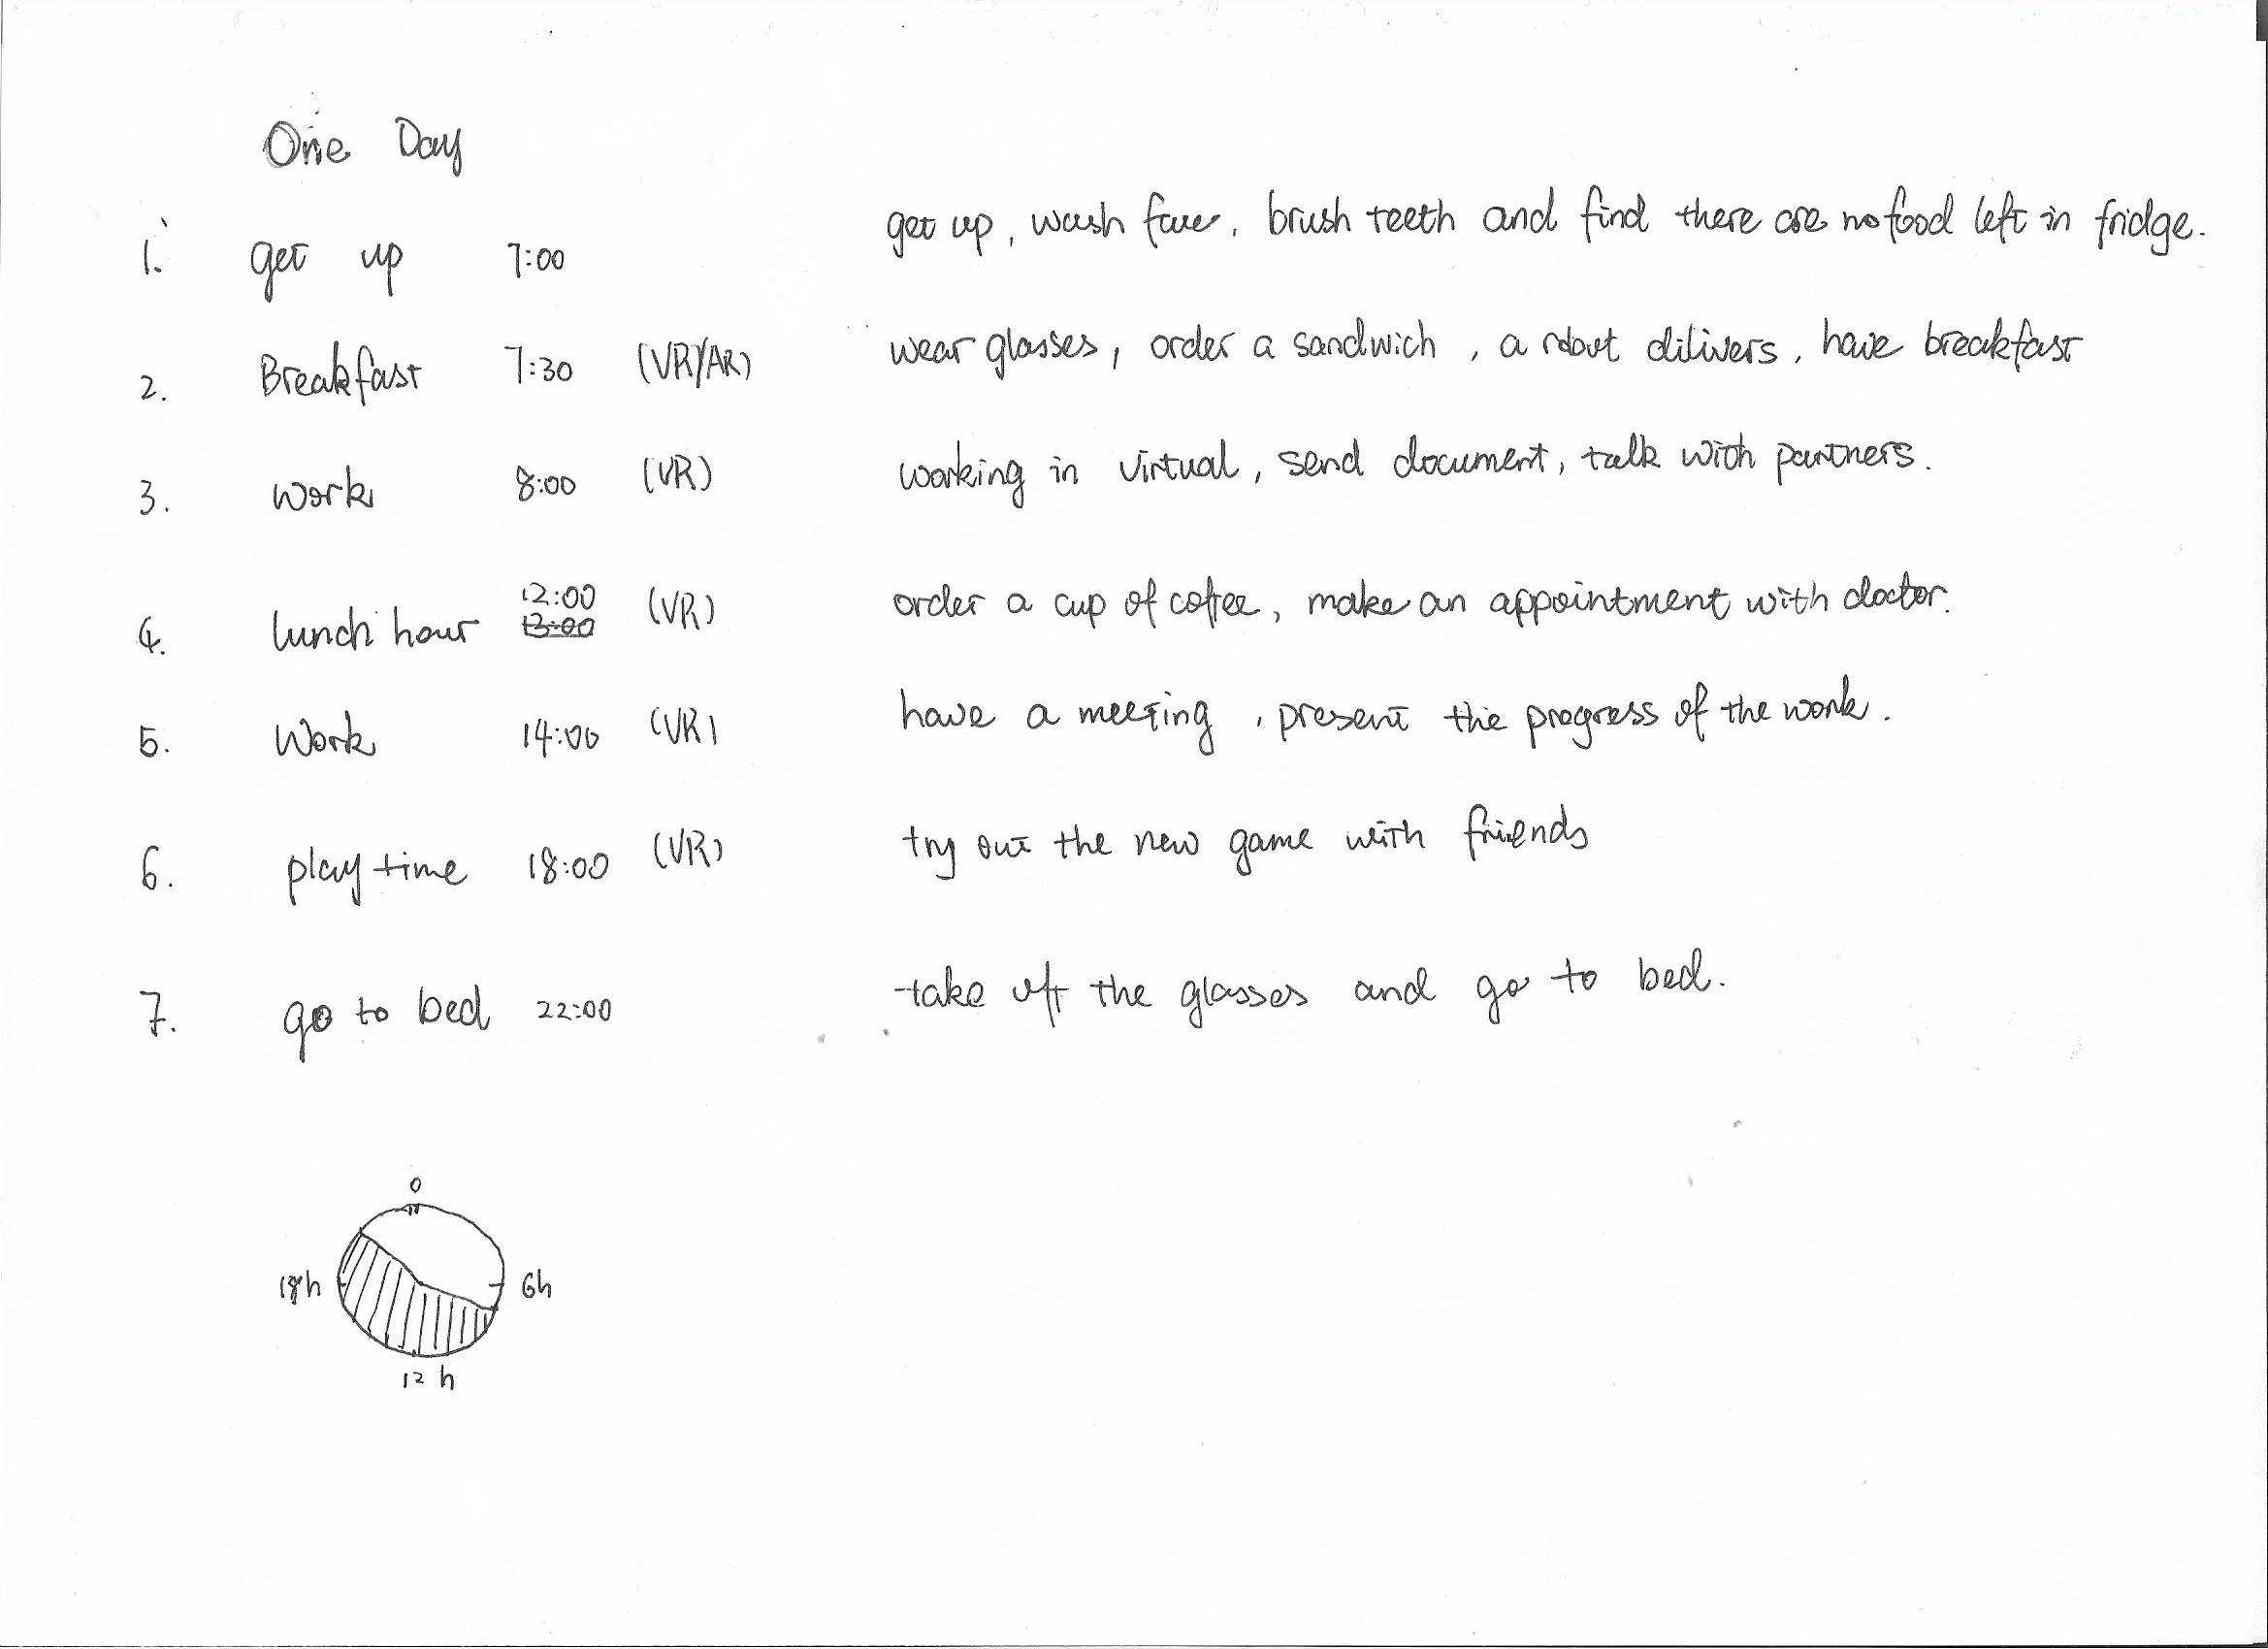 One Day
1. get up 7:00 get up, wash face, brush teeth and find there are no food left in fridge.
2. Breakfast 7:30 (VR/AR) wear glasses, order a sandwich, a robot dilivers, have breakfast
3. work 8:00 (VR) working in virtual, send document, talk with partners.
4. lunch hour 12:00 13:00 (VR) order a cup of coffee, make an appointment with doctor.
5. Work 14:00 (VR) have a meeting, present the progress of the work.
6. play time 18:00 (VR) try out the new game with friends
7. go to bed 22:00 take off the glasses and go to bed.
0
18h 6h
12 h